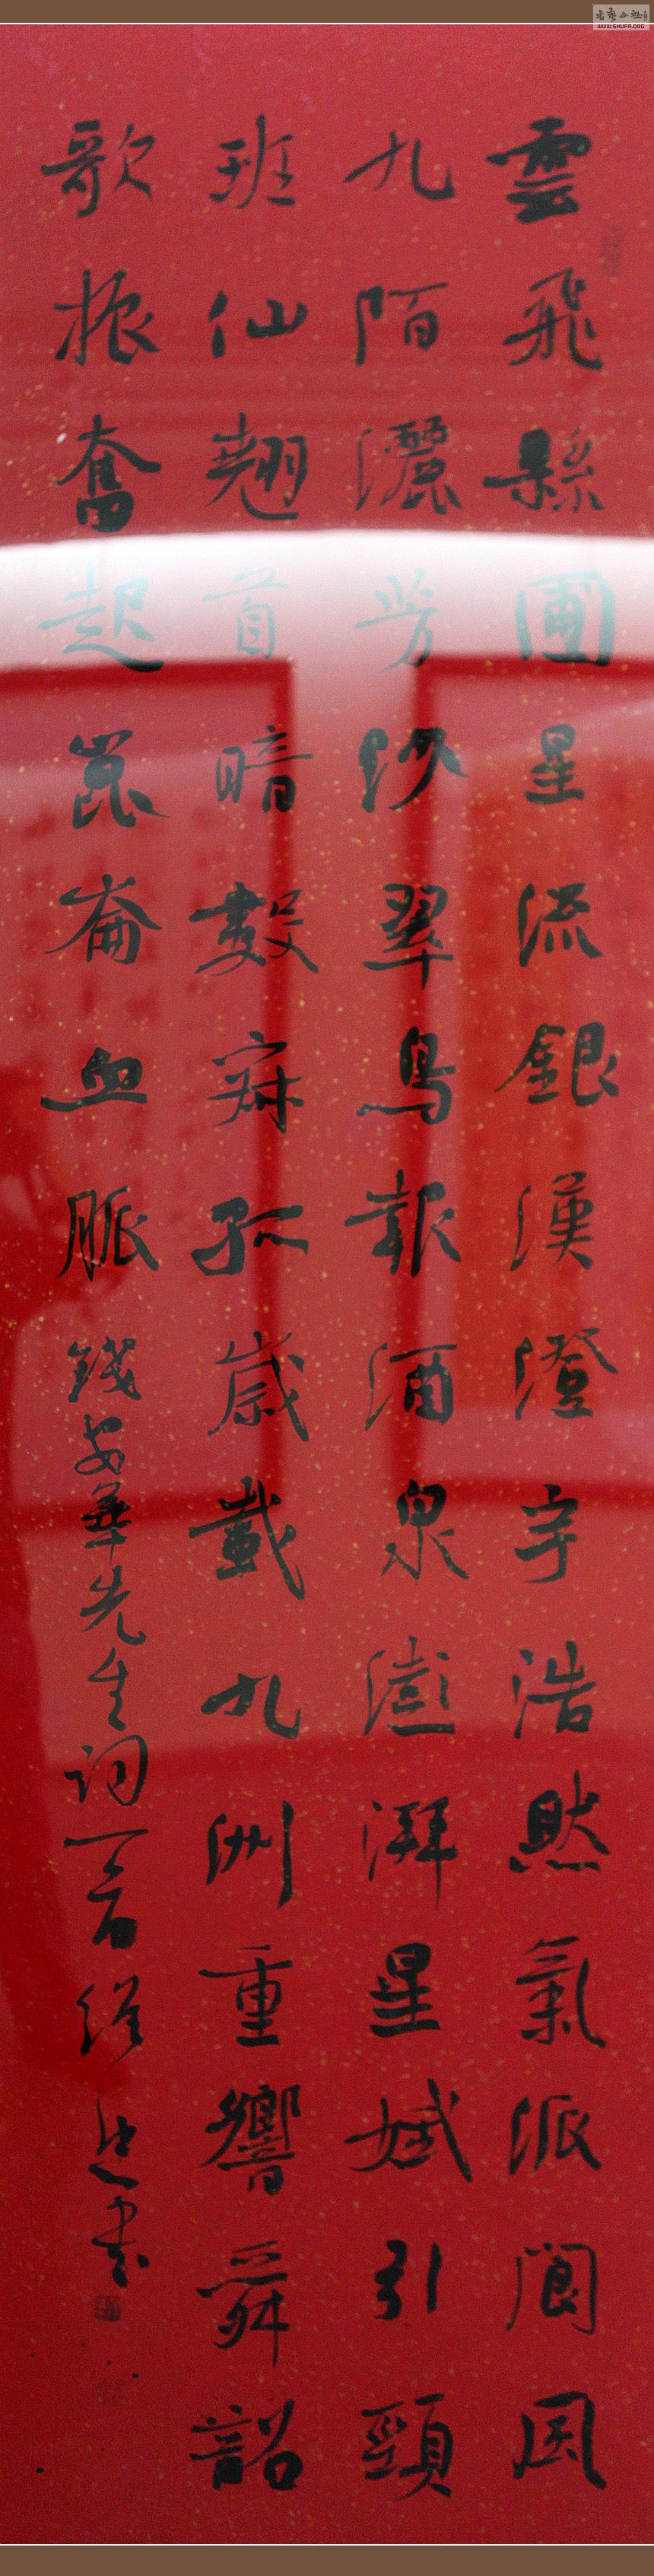 雲飛縣圃星流銀漢澄宇浩然氣派閬風
九陌灑芳紗翠鳥報酒泉澎湃星斌引頸
班仙翹首暗數寂孤歲載九洲重響舜韶
歌振奮起崑崙血脈 錢安華先生詞一首 經 書
WWW.SHUFA.ORG